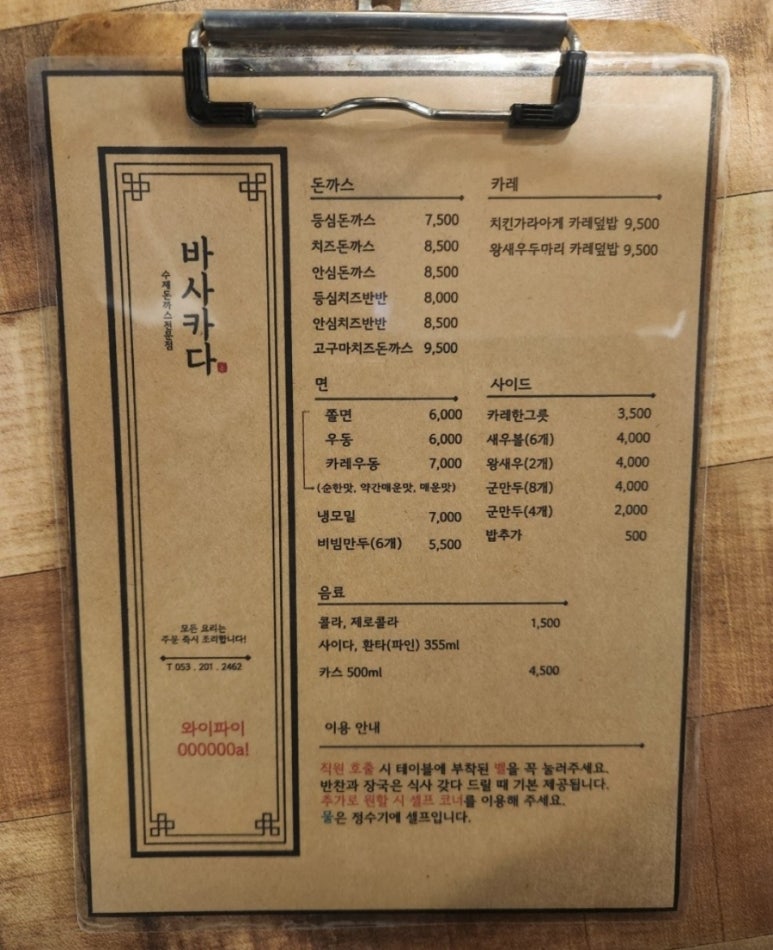 바사카다
수제돈까스전문점
모든 요리는
주문 즉시 조리합니다!
T 053 . 201 . 2462
와이파이
000000a!
돈까스
등심돈까스 7,500
치즈돈까스 8,500
안심돈까스 8,500
등심치즈반반 8,000
안심치즈반반 8,500
고구마치즈돈까스 9,500
카레
치킨가라아게 카레덮밥 9,500
왕새우두마리 카레덮밥 9,500
면
쫄면 6,000
우동 6,000
카레우동 7,000
(순한맛, 약간매운맛, 매운맛)
냉모밀 7,000
비빔만두(6개) 5,500
사이드
카레한그릇 3,500
새우볼(6개) 4,000
왕새우(2개) 4,000
군만두(8개) 4,000
군만두(4개) 2,000
밥추가 500
음료
콜라, 제로콜라 1,500
사이다, 환타(파인) 355ml
카스 500ml 4,500
이용 안내
직원 호출 시 테이블에 부착된 벨을 꼭 눌러주세요.
반찬과 장국은 식사 갖다 드릴 때 기본 제공됩니다.
추가로 원할 시 셀프 코너를 이용해 주세요.
물은 정수기에 셀프입니다.